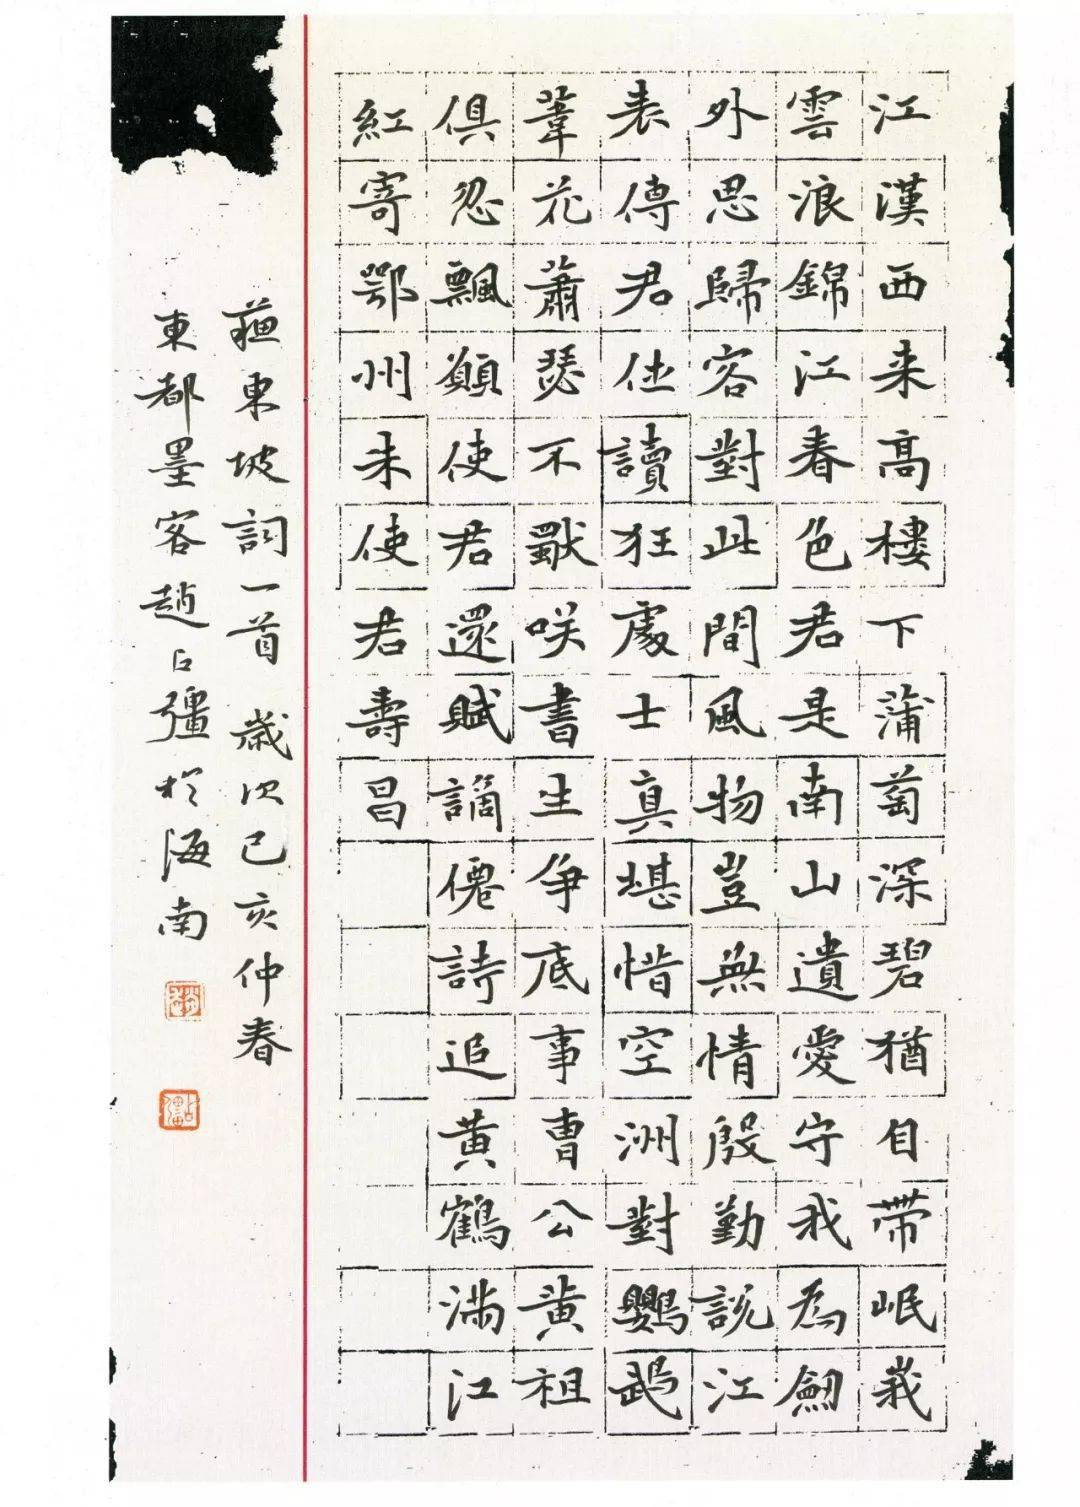 江漢西来高樓下蒲萄深碧猶自帶岷峩
雲浪錦江春色君是南山遺愛守我為劒
外思歸客對此間風物豈無情殷勤説江
表傳君休讀狂處士真堪惜空洲對鸚鵡
葦花蕭瑟不獨咲書生争底事曹公黄祖
俱忽飄願使君還賦謫僊詩追黄鶴滿江
紅寄鄂州朱使君壽昌
蘓東坡詞一首歲次己亥仲春
東都墨客趙占彊於海南